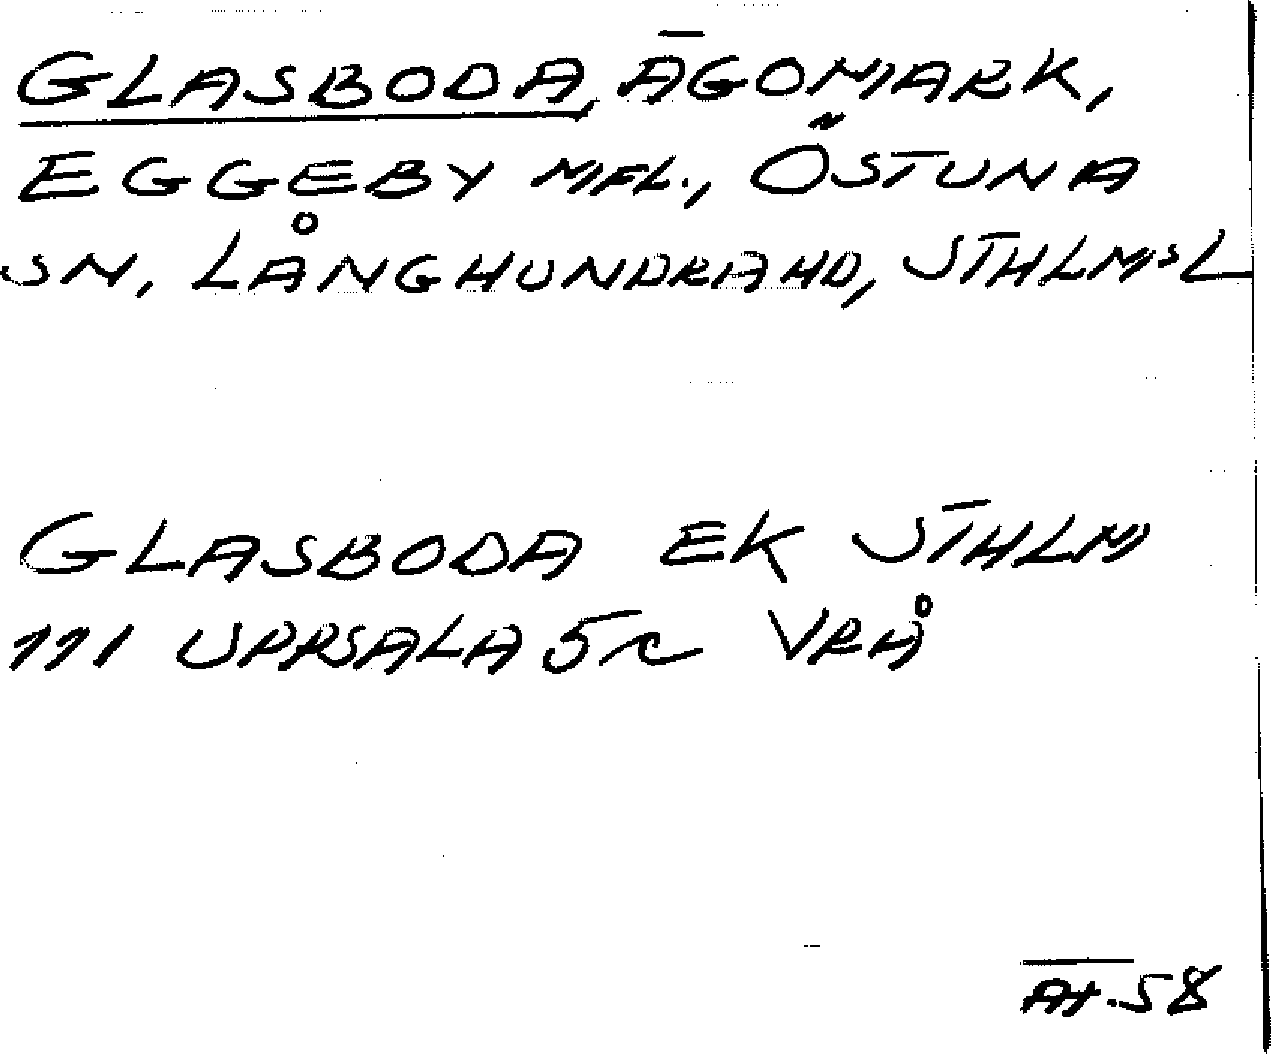 GLASBODA, ÄGOMARK,
EGGEBY MFL., ÖSTUNA
SN, LÅNGHUNDRA HD, STHLMS L
GLASBODA EK STHLM
111 UPPSALA 5c VRÅ
58